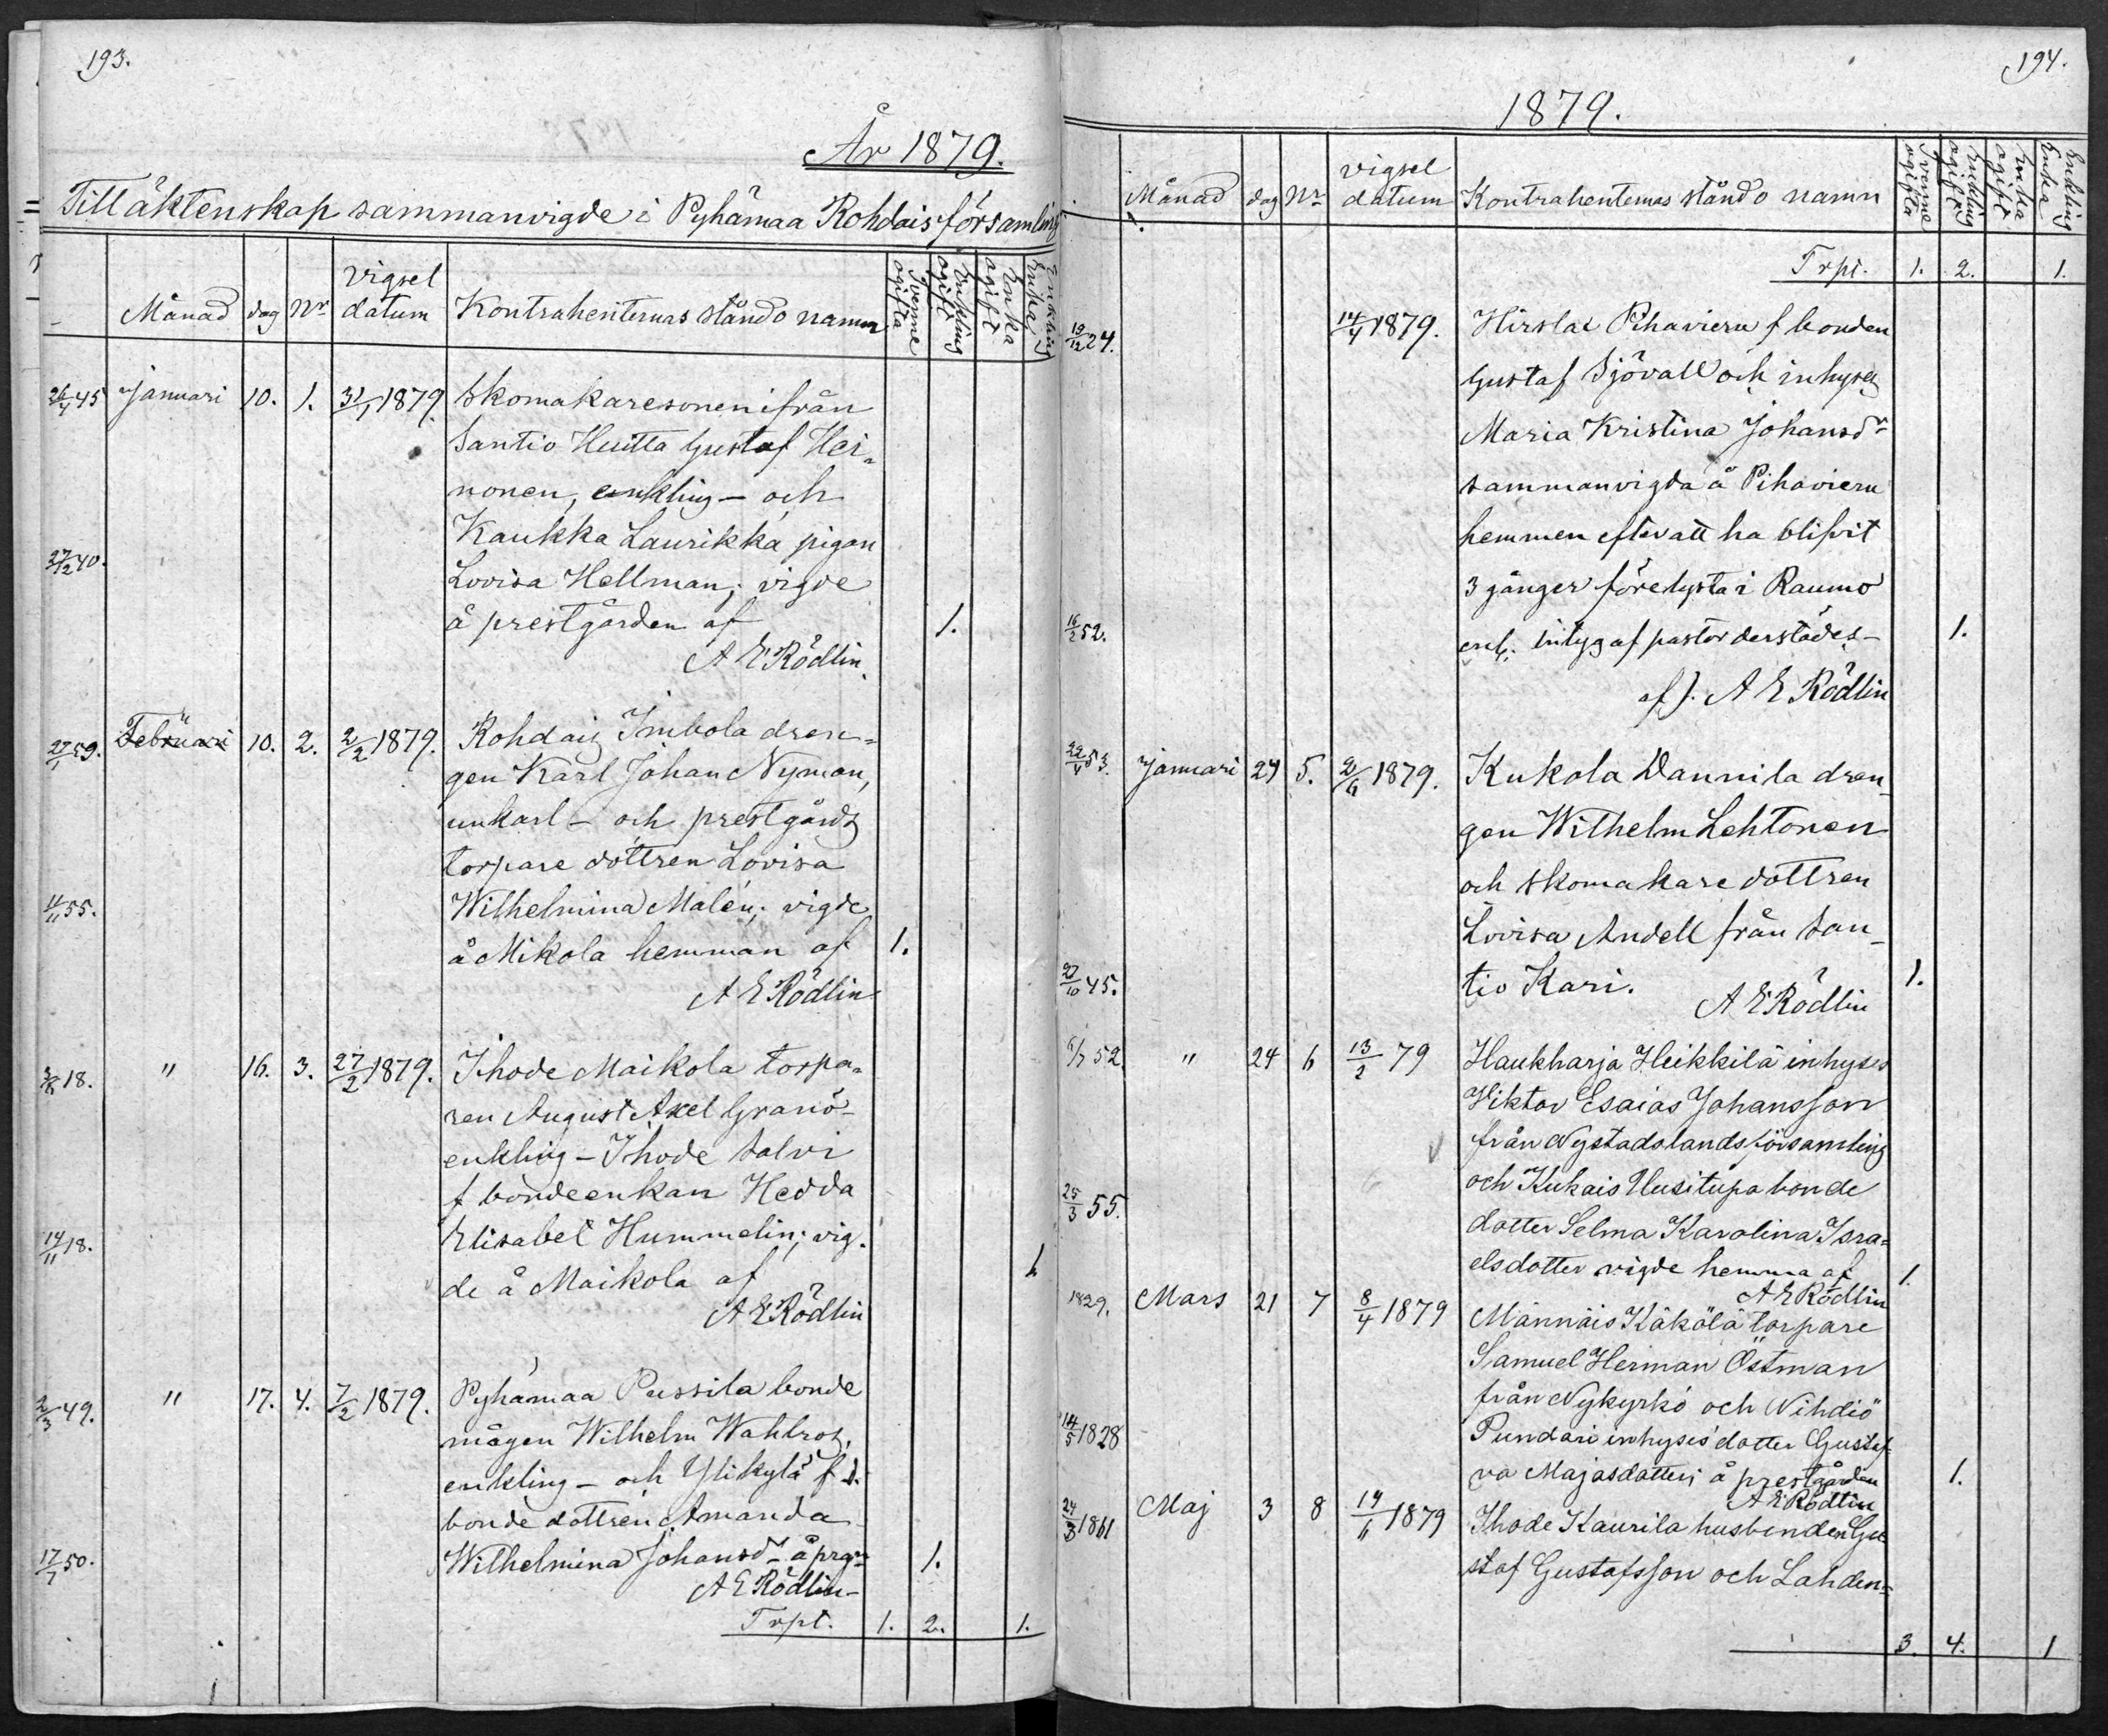 193.
År 1879.
Till äktenskap sammanvigde i Pyhämaa Rohdais församling
Månad dag Nr vigsel datum Kontrahenternas stånd o namn Tvenne ogifta Enkling ogift Enka ogift Enkling Enka
26/4 45 Januari 10. 1. 31/1 1879. Skomakaresonen ifrån
Santio Huitta Gustaf Hei-
nonen, enkling – och
Kaukka Laurikka pigan
27/2 40. Lovisa Hellman; vigde
å prestgården af 1.
A E Rödlin.
27/1 59. Februari " 10. 2. 2/2 1879. Rohdais Imbola dren-
gen Karl Johan Nyman,
unkarl – och prestgårds
torpare dottren Lovisa
11/11 55. Wilhelmina Malén; vigde
å Mikola hemman af 1.
A E Rödlin
18. " 16. 3. 27/2 1879. Ihode Maikola torpa-
ren August Axel Granö
enkling – Ihode Salvi
f bondeenkan Hedda
14/11 18. Elisabet Hummelin; vig-
de å Maikola af 1
A E Rödlin
2/3 49. " 17. 4. 7/2 1879. Pyhämaa Pussila bonde
mågen Wilhelm Wahlros,
enkling – och Ylikylä f d.
bonde dottren Amanda
17/7 50. Wilhelmina Johansdr å prg: 1.
A E Rödlin –
Trpt. 1. 2. 1.
194.
1879.
Månad dag Nr vigsel datum Kontrahenternas stånd o namn Tvenne ogifta Enkling ogift Enka ogift Enkling Enka
Trpt. 1. 2. 1.
19/12 24. 14/4 1879. Hirslax Pihavieru f bonden
Gustaf Sjövall och inhyses
Maria Kristina Johansdr
sammanvigda å Pihavieru
hemmen efter att ha blifvit
3 gånger förelysta i Raumo
16/2 52. enl. intyg af pastor derstädes – 1.
af). A E Rödlin
22/4 53. Januari 24 5. 2/6 1879. Kukola Dannila dren-
gen Wilhelm Lehtonen
och skomakare dottren
Lovisa Andell från San-
27/10 45. tio Kari. 1.
A E Rödlin
6/7 52. " 24 6 13/2 79 Haukharja Heikkilä inhyses
Viktor Esaias Johansson
från Nystads landsförsamling
25/3 55. och Kukais Uusitupa bonde
dotter Selma Karolina Isra-
elsdotter vigde hemma af 1.
A E Rödlin
1829. Mars 21 7 8/4 1879 Männäis Käkölä torpare
Samuel Herman Östman
från Nykyrko och Nihdiö
14/5 1828 Pundari inhyses dotter Gustaf-
va Majasdotter; å prestgården 1.
A E Rödlin
24/3 1861 Maj 3 8 19/6 1879 Ihode Kaurila husbonden Gu-
staf Gustafsson och Lahden-
3. 4. 1